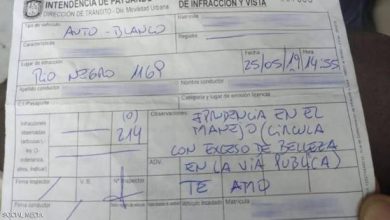 INTENDENCIA DE PAYSANDÚ
DIRECCIÓN DE TRÁNSITO - Div. Movilidad Urbana
DE INFRACCIÓN Y VISTA
Tipo de vehículo
AUTO - BLANCO
Matrícula
Características
Lugar de infracción
RIO NEGRO 1169
Fecha
25/05/19
14:55
Apellido conductor
Nombre conductor
C.I./Pasaporte
Categoría y lugar de emisión licencia
Infracciones observadas
(0)
214
Observaciones:
PRUDENCIA EN EL
MANEJO (CIRCULA
CON EXCESO DE BELLEZA
EN LA VIA PUBLICA)
ADV.
TE AMO
Firma inspector
V.B.
Nº Inspector
Firma conductor
Matrícula
SOCIAL MEDIA